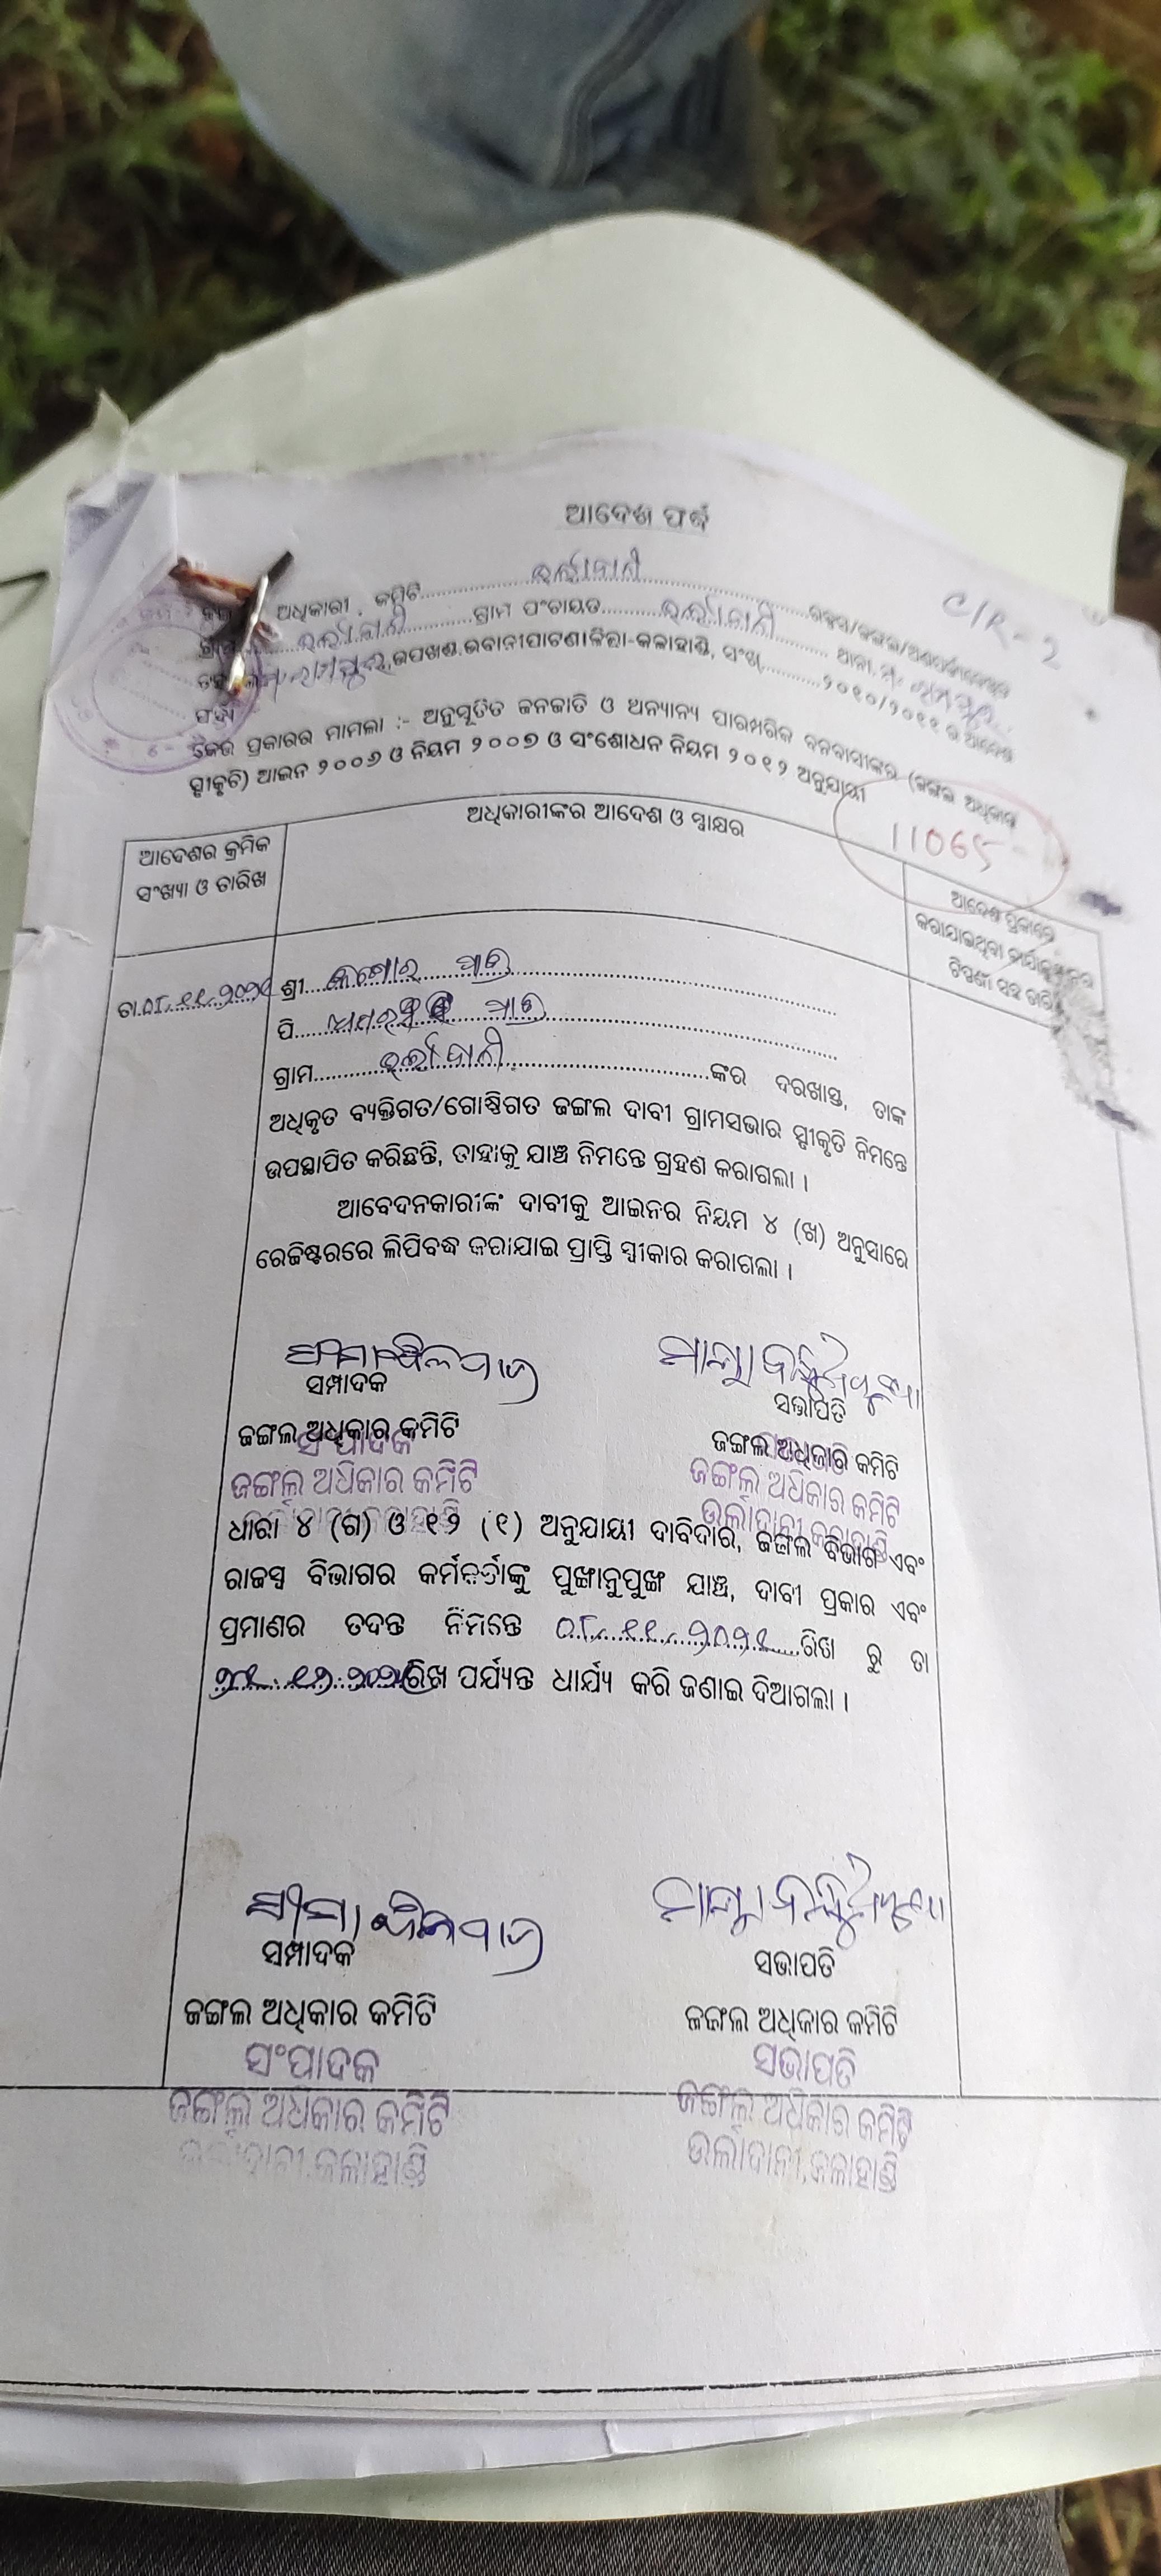 ଆଦେଶ ଫର୍ଦ୍ଦ
C/R-2
ଅଧିକାରୀ, କମିଟି.....ଉର୍ଲାଦାନୀ
ଗ୍ରାମ.....ଉର୍ଲାଦାନୀ.....ଗ୍ରାମ ପଂଚାୟତ.....ଉର୍ଲାଦାନୀ..... ଥାନା.
ଉପଖଣ୍ଡ.ଭବାନୀପାଟଣା/ଜିଲ୍ଲା-କଳାହାଣ୍ଡି, ସଂଖ୍ୟା.....୨୦୧୦/୨୦୧୧ ର ଆଦେଶ
ଫର୍ଦ୍ଦ
କେଉଁ ପ୍ରକାରର ମାମଲା :- ଅନୁସୂଚିତ ଜନଜାତି ଓ ଅନ୍ୟାନ୍ୟ ପାରମ୍ପରିକ ବନବାସୀଙ୍କର (ଜଙ୍ଗଲ ଅଧିକାର
ସ୍ବୀକୃତି) ଆଇନ ୨୦୦୬ ଓ ନିୟମ ୨୦୦୭ ଓ ସଂଶୋଧନ ନିୟମ ୨୦୧୨ ଅନୁଯାୟୀ
11065
ଆଦେଶର କ୍ରମିକ
ସଂଖ୍ୟା ଓ ତାରିଖ
ଅଧିକାରୀଙ୍କର ଆଦେଶ ଓ ସ୍ୱାକ୍ଷର
ଆଦେଶ ପ୍ରକାରେ
କରାଯାଇଥିବା କାର୍ଯ୍ୟାନୁଷ୍ଠାନର
ଟିପ୍ପଣୀ ସହ
ତା.୦୮.୧୧.୨୦୨୧
ଶ୍ରୀ.....କିଶୋର ମାଝି
ପି..... ମାଝି
ଗ୍ରାମ.....ଉର୍ଲାଦାନୀ.....ଙ୍କର ଦରଖାସ୍ତ, ତାଙ୍କ
ଅଧିକୃତ ବ୍ୟକ୍ତିଗତ/ଗୋଷ୍ଠିଗତ ଜଙ୍ଗଲ ଦାବୀ ଗ୍ରାମସଭାର ସ୍ୱୀକୃତି ନିମନ୍ତେ
ଉପସ୍ଥାପିତ କରିଛନ୍ତି, ତାହାକୁ ଯାଞ୍ଚ ନିମନ୍ତେ ଗ୍ରହଣ କରାଗଲା ।
ଆବେଦନକାରୀଙ୍କ ଦାବୀକୁ ଆଇନର ନିୟମ ୪ (ଖ) ଅନୁସାରେ
ରେଜିଷ୍ଟରରେ ଲିପିବଦ୍ଧ କରାଯାଇ ପ୍ରାପ୍ତି ସ୍ୱୀକାର କରାଗଲା ।
ସମ୍ପାଦକ
ସଭାପତି
ଜଙ୍ଗଲ ଅଧିକାର କମିଟି
ଜଙ୍ଗଲ ଅଧିକାର କମିଟି
ସଂପାଦକ
ଜଙ୍ଗଲ ଅଧିକାର କମିଟି
ଜଙ୍ଗଲ ଅଧିକାର କମିଟି
ଉର୍ଲାଦାନୀ,କଳାହାଣ୍ଡି
ଧାରା ୪ (ଗ) ଓ ୧୨ (୧) ଅନୁଯାୟୀ ଦାବିଦାର, ଜଙ୍ଗଲ ବିଭାଗ ଏବଂ
ରାଜସ୍ୱ ବିଭାଗର କର୍ମକର୍ତ୍ତାଙ୍କୁ ପୁଙ୍ଖାନୁପୁଙ୍ଖ ଯାଞ୍ଚ, ଦାବୀ ପ୍ରକାର ଏବଂ
ପ୍ରମାଣର ତଦନ୍ତ ନିମନ୍ତେ ୦୮.୧୧.୨୦୨୧.....ରିଖ ରୁ ତା
.୧୨.୨୦୨୧ରିଖ ପର୍ଯ୍ୟନ୍ତ ଧାର୍ଯ୍ୟ କରି ଜଣାଇ ଦିଆଗଲା ।
ସମ୍ପାଦକ
ସଭାପତି
ଜଙ୍ଗଲ ଅଧିକାର କମିଟି
ଜଙ୍ଗଲ ଅଧିକାର କମିଟି
ସଂପାଦକ
ସଭାପତି
ଜଙ୍ଗଲ ଅଧିକାର କମିଟି
ଜଙ୍ଗଲ ଅଧିକାର କମିଟି
ଉର୍ଲାଦାନୀ,କଳାହାଣ୍ଡି
ଉର୍ଲାଦାନୀ,କଳାହାଣ୍ଡି